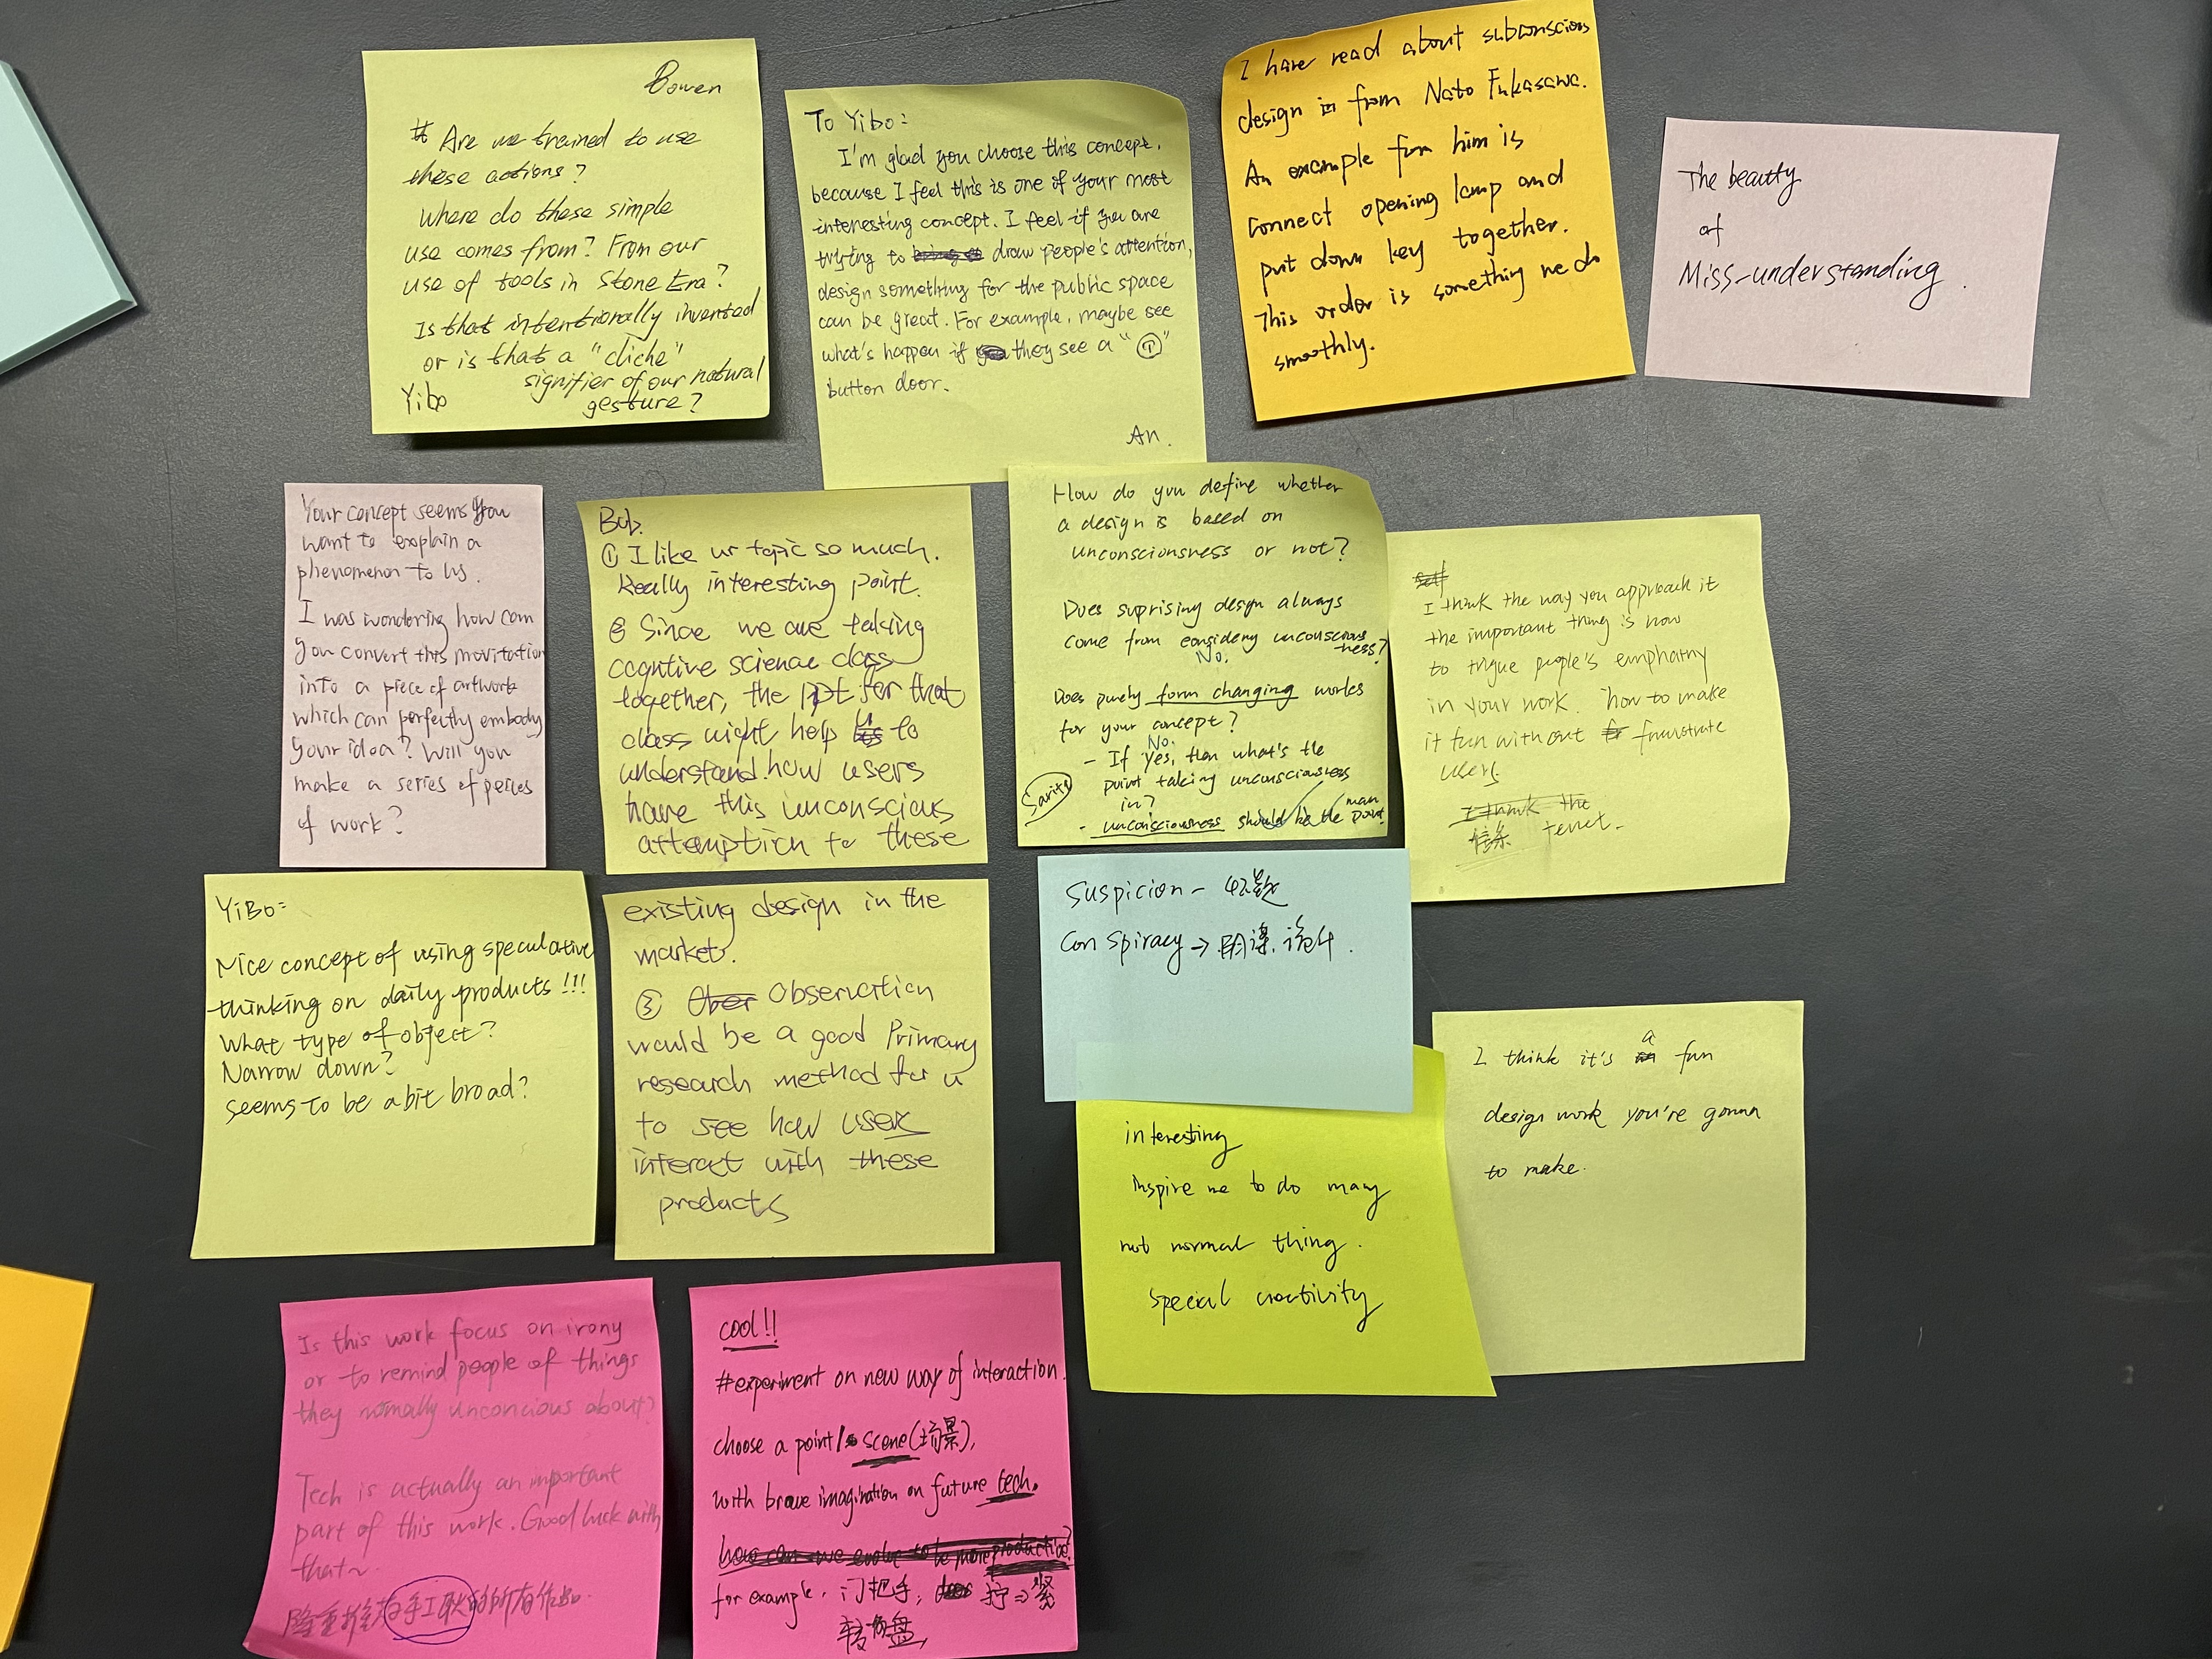 Bowen
# Are we trained to use
these actions?
Where do these simple
use comes from? From our
use of tools in Stone Era?
Is that intentionally invented
or is that a "cliche"
signifier of our natural
gesture?
Yibo
To Yibo:
I'm glad you choose this concept,
because I feel this is one of your most
interesting concept. I feel if you are
trying to draw people's attention,
design something for the public space
can be great. For example, maybe see
what's happen if they see a " "
button door.
An.
I have read about subconscious
design is from Nato Fukasawa.
An example from him is
connect opening lamp and
put down key together.
This order is something we do
smoothly.
The beautty
of
Miss-understanding.
Your concept seems you
want to explain a
phenomenon to us.
I was wondering how can
you convert this movitation
into a piece of artwork
which can perfectly embody
your idea? Will you
make a series of peices
of work?
Bob.
① I like ur topic so much.
Really interesting point.
② Since we are taking
cogntive science class
together, the ppt for that
class might help u to
understand how users
have this unconscious
attemption to these
existing design in the
market.
③ Observation
would be a good Primary
research method for u
to see how users
interact with these
products
How do you define whether
a design is based on
unconsciousness or not?
Does suprising design always
come from considery unconsciousness?
No.
Does purely form changing works
for your concept?
No.
- If Yes, then what's the
point taking unconsciousness
in?
- unconsciousness should be the main point
Sarite
I think the way you approach it
the important thing is how
to trigue people's emphathy
in your work. how to make
it fun without fruustrate
users.
I think the
信条 tenet.
YiBo:
Nice concept of using speculative
thinking on daily products!!!
What type of object?
Narrow down?
seems to be a bit broad?
Suspicion -
Conspiracy → 阴谋, 诡计.
interesting
inspire me to do many
not normal thing.
special creativity
I think it's a fun
design work you're gonna
to make.
Is this work focus on irony
or to remind people of things
they normally unconcious about?
Tech is actually an important
part of this work. Good luck with
that~
隆重推荐手工耿的所有作品.
cool!!
#experiment on new way of interaction.
choose a point/scene(场景),
with brave imagination on future tech.
how can we evolve to be more productive?
for example, 门把手, 拧⇒紧
转 盘,